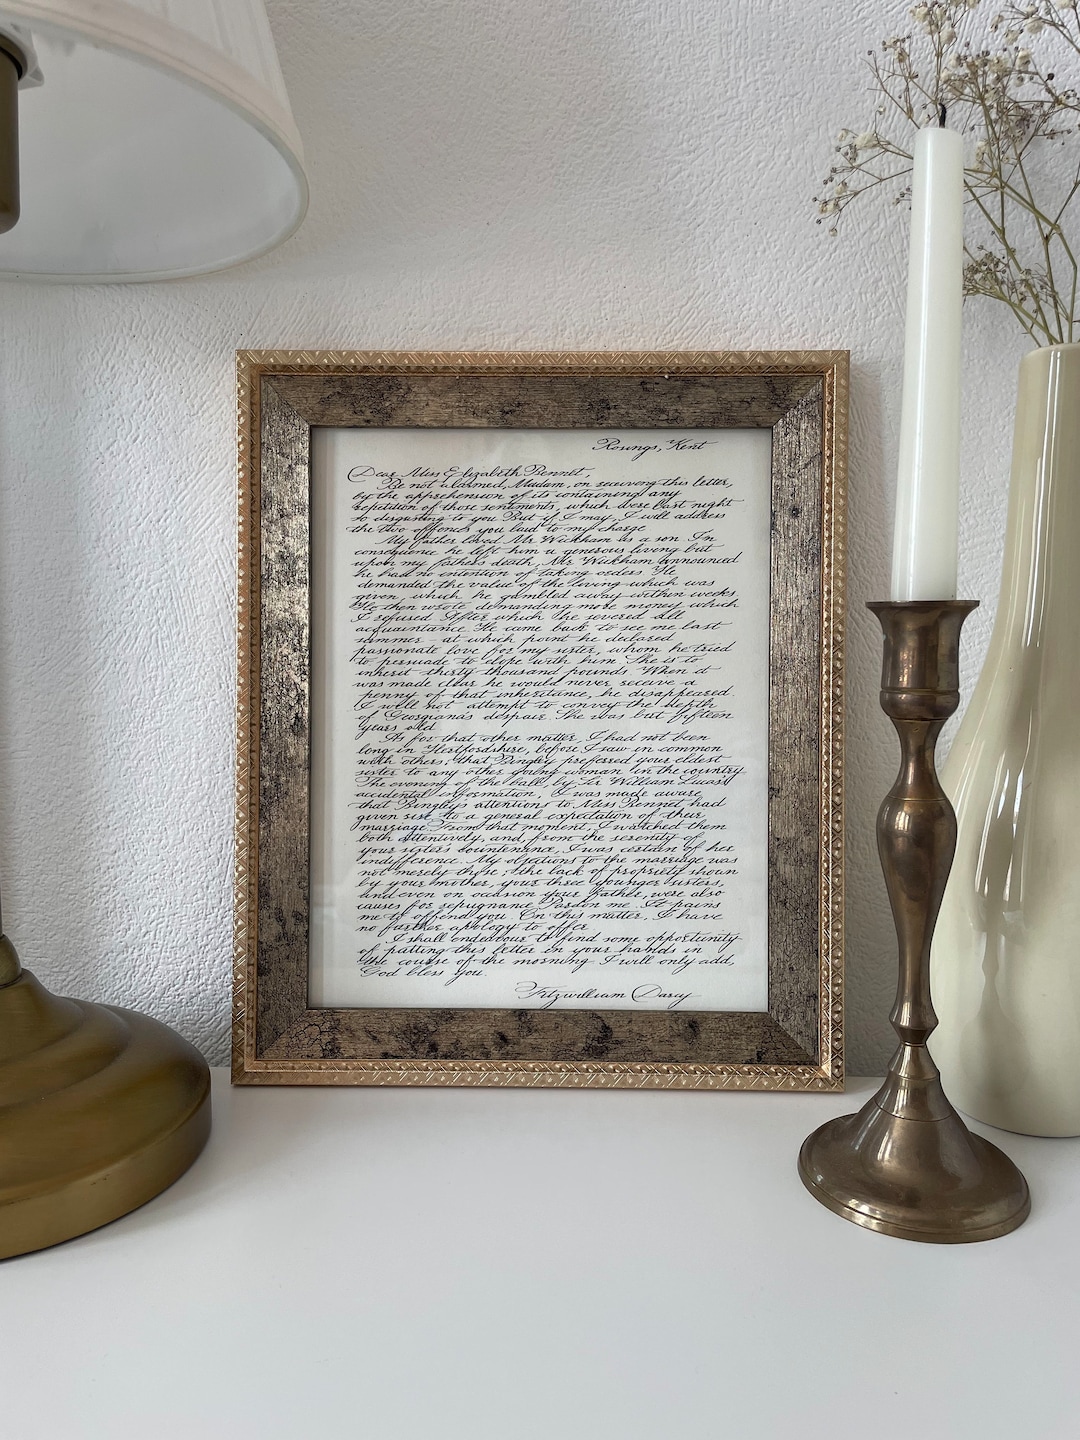 Rosings, Kent
Dear Miss Elizabeth Bennet,
Be not alarmed, Madam, on receiving this letter,
by the apprehension of its containing any
repetition of those sentiments, which were last night
so disgusting to you But if I may, I will address
the two offences you laid to my charge
My father loved Mr Wickham as a son In
consequence he left him a generous living but
upon my fathers death, Mr Wickham announced
he had no intention of taking orders He
demanded the value of the living which was
given, which he gambled away within weeks.
He then wrote demanding more money which
I refused After which he severed all
acquaintance He came back to see me last
summer - at which point he declared
passionate love for my sister, whom he tried
to persuade to elope with him She is to
inherit thirty thousand pounds When it
was made clear he would never receive a
penny of that inheritance, he disappeared.
I will not attempt to convey the depth
of Georgiana's despair. She was but fifteen
years old
As for that other matter, I had not been
long in Hertfordshire, before I saw in common
with others, that Bingley preferred your eldest
sister to any other young woman in the country
The evening of the ball, by Sir William Lucas's
accidental information, I was made aware
that Bingley's attentions to Miss Bennet had
given rise to a general expectation of their
marriage From that moment, I watched them
both attentively and, from the serenity of
your sister's countenance, I was certain of her
indifference. My objections to the marriage was
not merely those, the lack of propriety shown
by your mother, your three younger sisters,
and even on occasion your Father, were also
causes for repugnance Pardon me. It pains
me to offend you. On this matter, I have
no further apology to offer
I shall endeavour to find some opportunity
of putting this letter in your hands in
the course of the morning I will only add,
God bless you.
Fitzwilliam Darcy